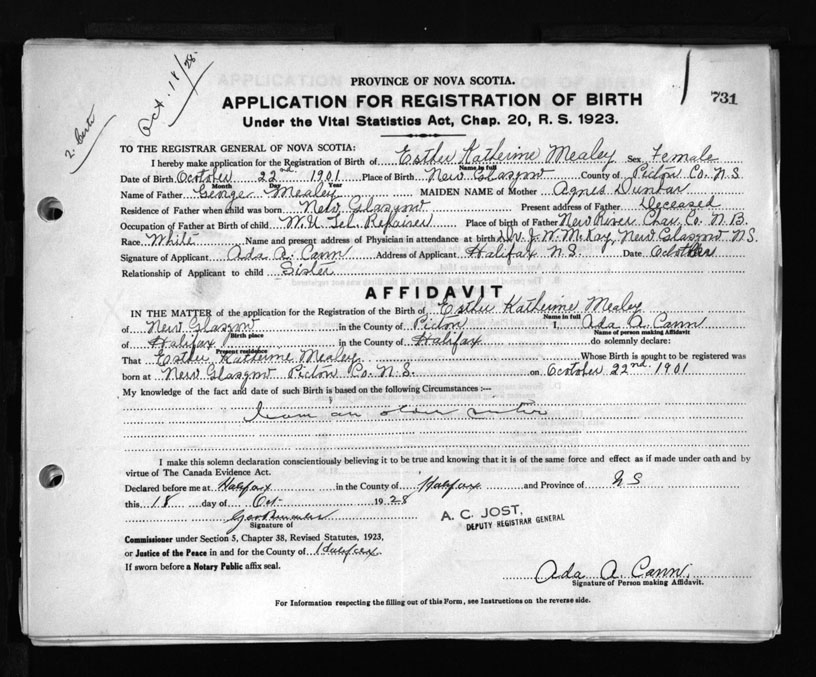 Oct. 18/28.
2. Certs
731
PROVINCE OF NOVA SCOTIA.
APPLICATION FOR REGISTRATION OF BIRTH
Under the Vital Statistics Act, Chap. 20, R. S. 1923.
TO THE REGISTRAR GENERAL OF NOVA SCOTIA:
I hereby make application for the Registration of Birth of Esther Katherine Mealey Sex Female
Name in full
Date of Birth October 22nd 1901 Place of Birth New Glasgow County of Pictou Co. N.S
Month Day Year
Name of Father George Mealey MAIDEN NAME of Mother Agnes Dunbar
Residence of Father when child was born New Glasgow Present address of Father Deceased
Occupation of Father at Birth of child W.U Tel. Repairer Place of birth of Father New River Char. Co. N.B.
Race White Name and present address of Physician in attendance at birth Dr. J. W. McKay, New Glasgow N.S.
Signature of Applicant Ada A. Cann Address of Applicant Halifax N.S. Date October
Relationship of Applicant to child Sister
AFFIDAVIT
IN THE MATTER of the application for the Registration of the Birth of Esther Katherine Mealey
Name in full
of New Glasgow in the County of Pictou I, Ada A. Cann
Birth place Name of person making Affidavit
of Halifax in the County of Halifax do solemnly declare:
Present residence
That Esther Katherine Mealey Whose Birth is sought to be registered was
born at New Glasgow Pictou Co. N.S. on October 22nd. 1901
My knowledge of the fact and date of such Birth is based on the following Circumstances :—
I am an older sister
I make this solemn declaration conscientiously believing it to be true and knowing that it is of the same force and effect as if made under oath and by
virtue of The Canada Evidence Act.
Declared before me at Halifax in the County of Halifax and Province of N S
this 18 day of Oct 1928
Signature of
A. C. JOST,
DEPUTY REGISTRAR GENERAL
Commissioner under Section 5, Chapter 38, Revised Statutes, 1923,
or Justice of the Peace in and for the County of Halifax
If sworn before a Notary Public affix seal.
Ada A. Cann.
Signature of Person making Affidavit.
For Information respecting the filling out of this Form, see Instructions on the reverse side.